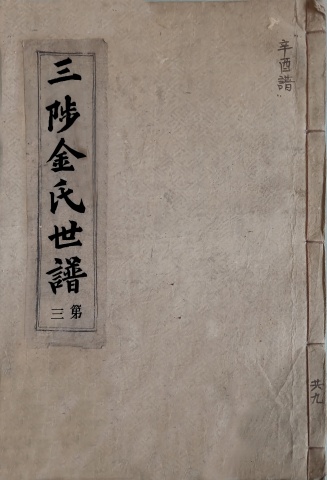 辛酉譜
三陟金氏世譜
第三
共九